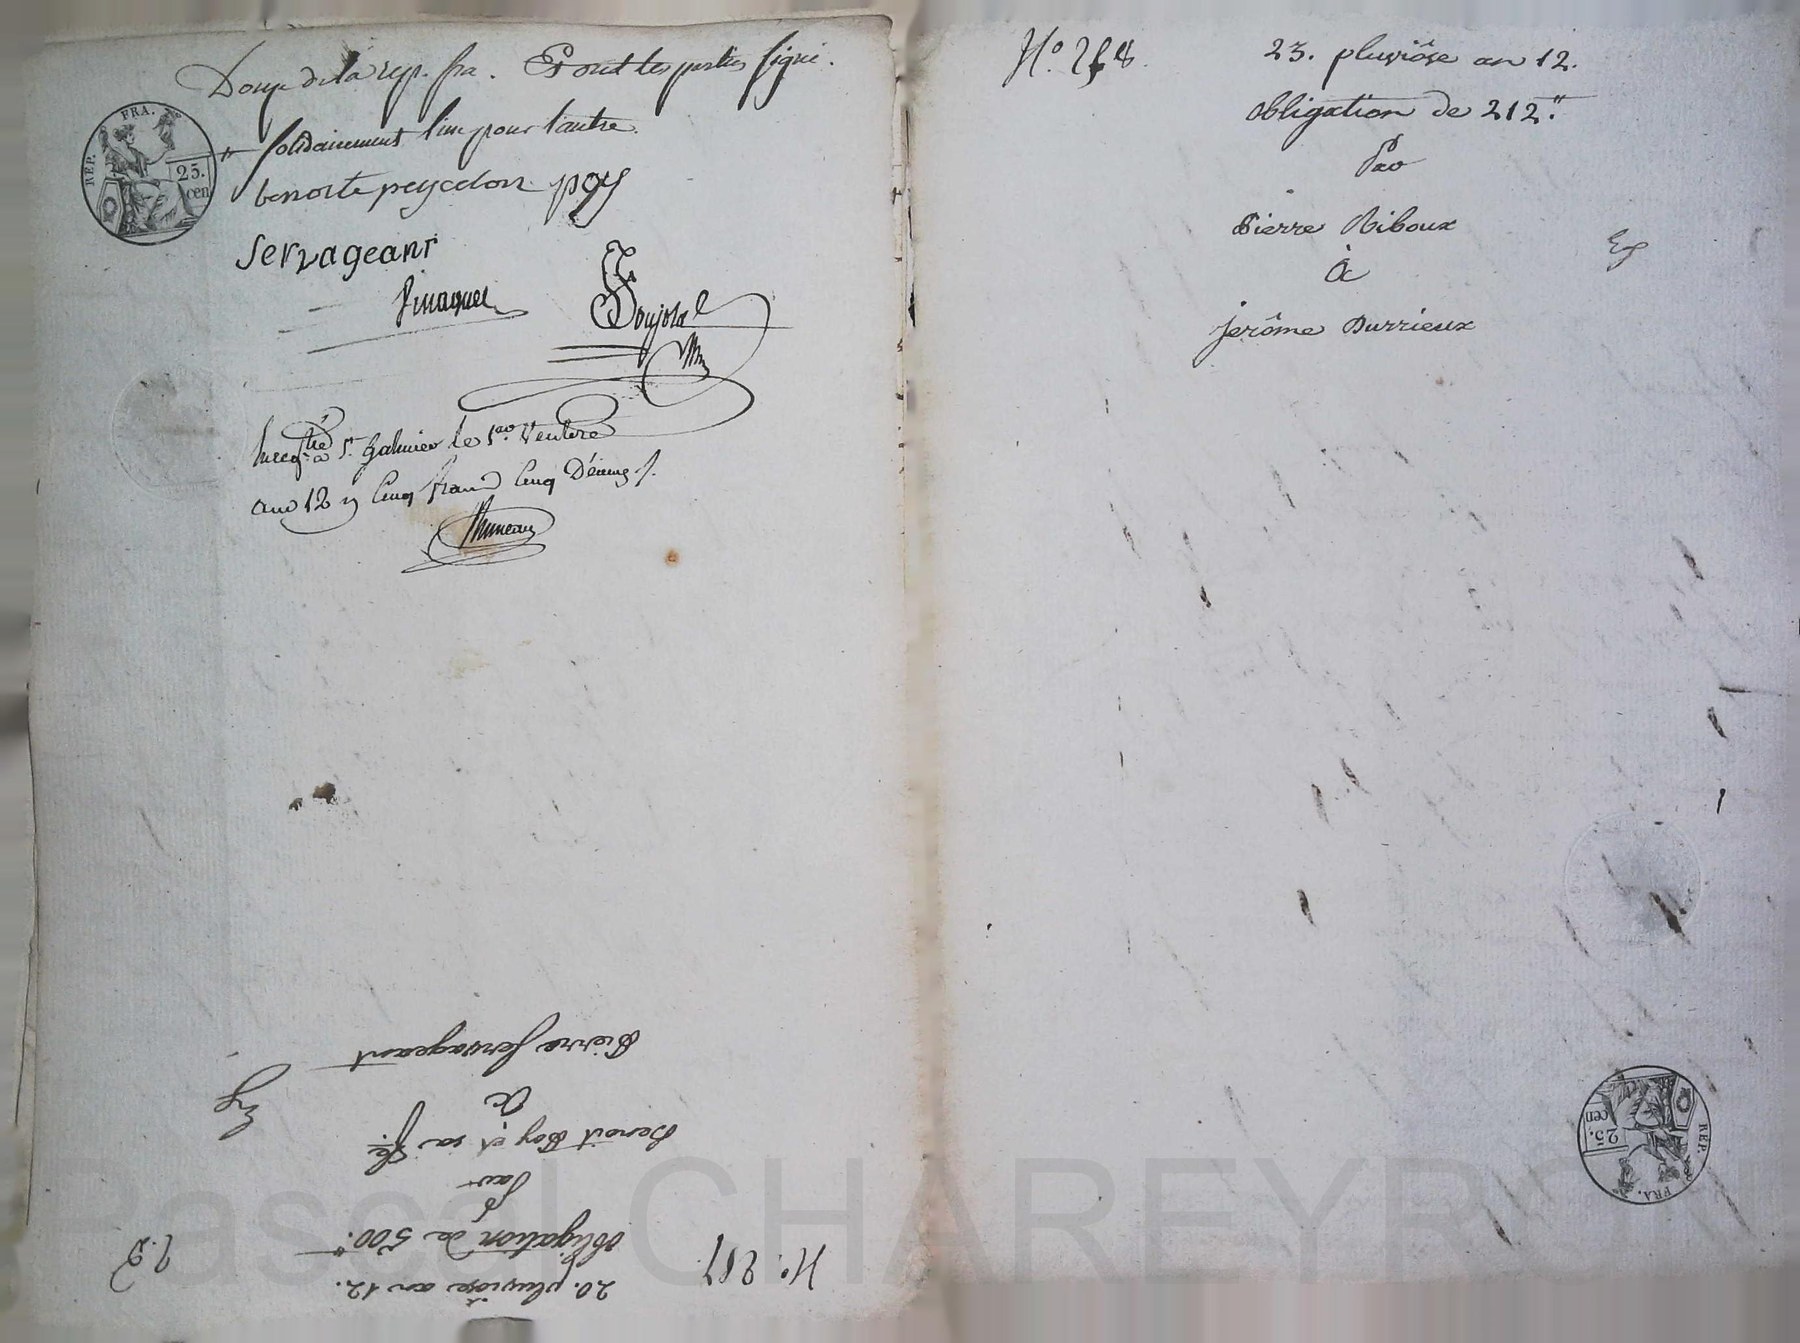 Douze de la rep. fra. Et ont les parties signé.
REP. FRA.
25.
cen
" solidairement l'un pour l'autre
benoite peycelon poy
servageant
Pinaquet
Poujola
Enregtré à St. Galmier le 1er Ventose
an 12 Cinq francs Cinq Décimes
20. pluviose an 12.
N.° 267.
obligation de 500."
Par
Benoit Poy et sa fe.
à
Pierre Servageant
N.° 268.
23. pluviôse an 12.
obligation de 212."
Par
Pierre Riboux
à
Jerôme Durrieux
REP. FRA.
25.
cen
Pascal CHAREYRON